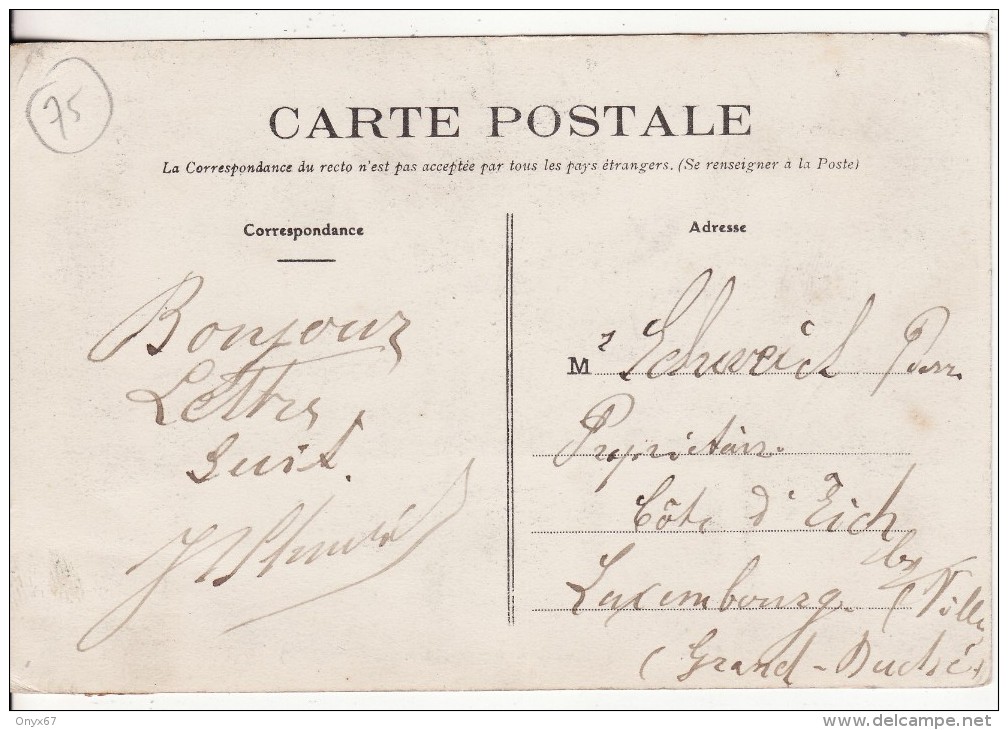 75
CARTE POSTALE
La Correspondance du recto n'est pas acceptée par tous les pays étrangers. (Se renseigner à la Poste)
Correspondance
Adresse
Bonjour
Lettre
Suit.
Mr Schweich Pierre
Propriétaire
Côte d'Eich
Luxembourg (Ville)
(Grand-Duché)
Onyx67
www.delcampe.net